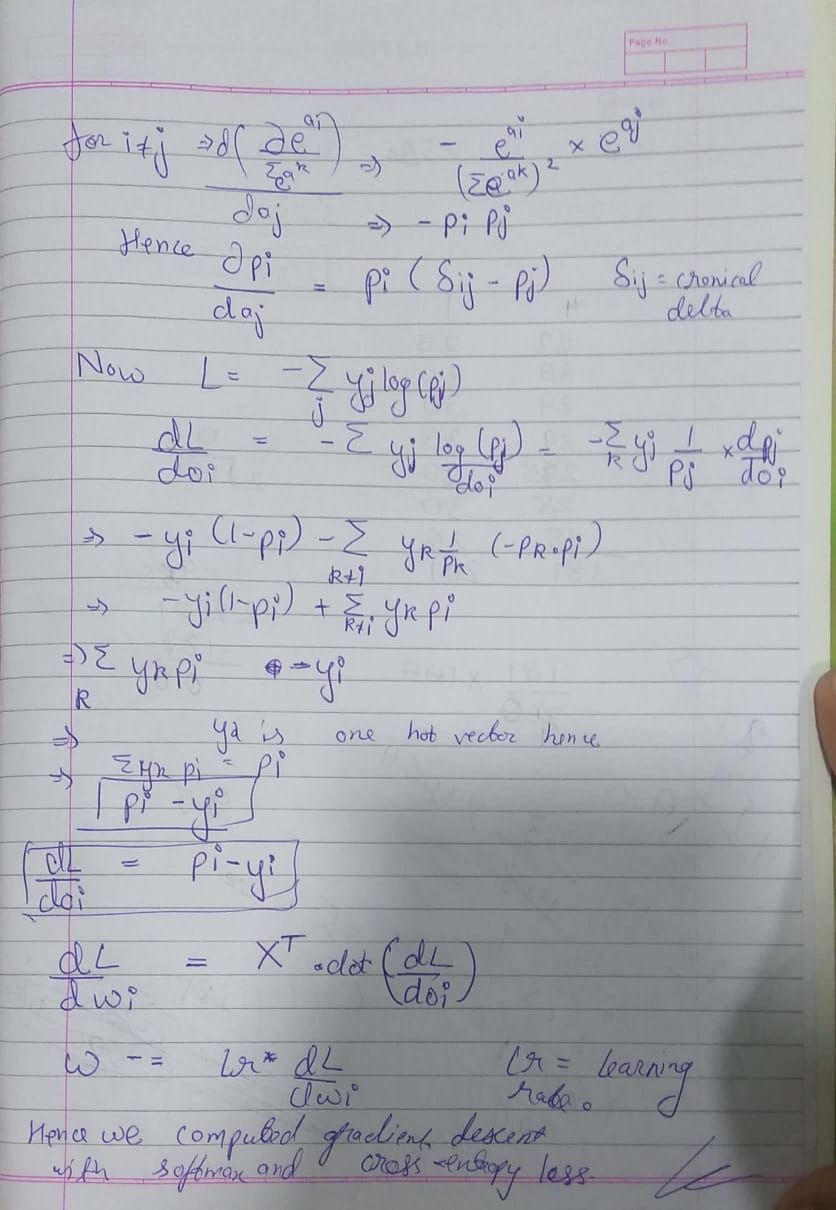 Page No.
for i≠j ⇒ d(∂e^ai / Σe^ak) / daj ⇒ - e^ai / (Σe^ak)^2 × e^aj
⇒ - pi pj
Hence ∂pi / daj = pi (δij - pj) δij = cronical delta
Now L = -Σ_j yj log(pj)
dL/doi = -Σ yj log(pj)/doi = -Σ_k yj 1/pj × dpj/doi
⇒ -yi (1-pi) - Σ_k≠i yk 1/pk (-pk·pi)
⇒ -yi(1-pi) + Σ_k≠i yk pi
⇒ Σ_k yk pi - yi
⇒ is one hot vector hence
⇒ Σyk pi = pi
pi - yi
dL/doi = pi - yi
dL/dwi = X^T .dot (dL/doi)
w -= lr* dL/dwi lr = learning rate.
Hence we computed gradient descent
with softmax and cross-entropy loss.